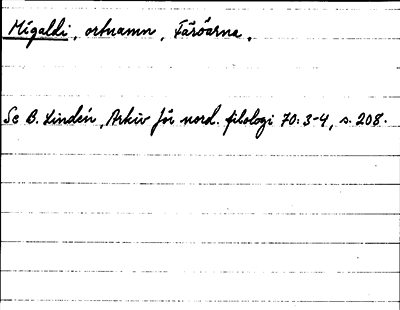 Mígaldi, ortnamn, Färöarna.
Se B. Lindén, Arkiv för nord. filologi 70:3-4, s. 208.